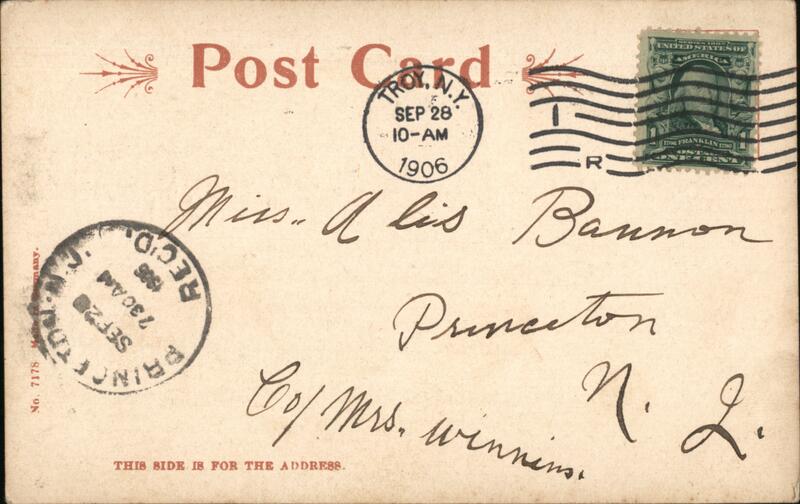 Post Card
TROY, N.Y.
SEP 28
10-AM
1906
1
R
UNITED STATES OF
AMERICA
1 FRANKLIN 1
ONE CENT
Miss. Alis Bannon
Princeton
N. J.
Co/ Mrs. Winnins.
PRINCETON, N.J.
SEP 28
7 30 AM
1906
REC'D.
No. 7178
THIS SIDE IS FOR THE ADDRESS.